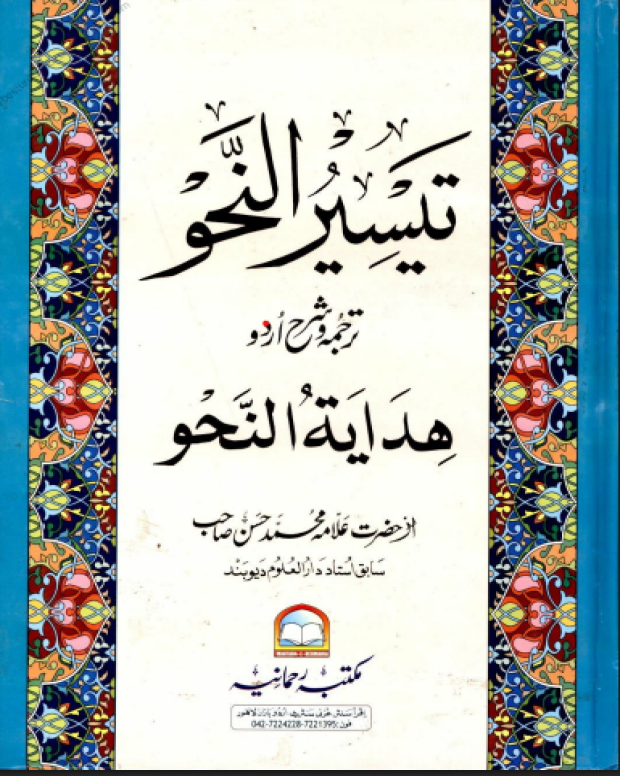 تيسير النحو
ترجمہ و شرح اُردو
هِدَايَةُ النَّحو
از حضرت علامہ محمد حسن صاحب
سابق اُستاد دارالعلوم دیوبند
مکتبہ رحمانیہ
اِقرأ سنٹر غزنی سٹریٹ، اُردو بازار لاہور
فون: 042-7224228-7221395